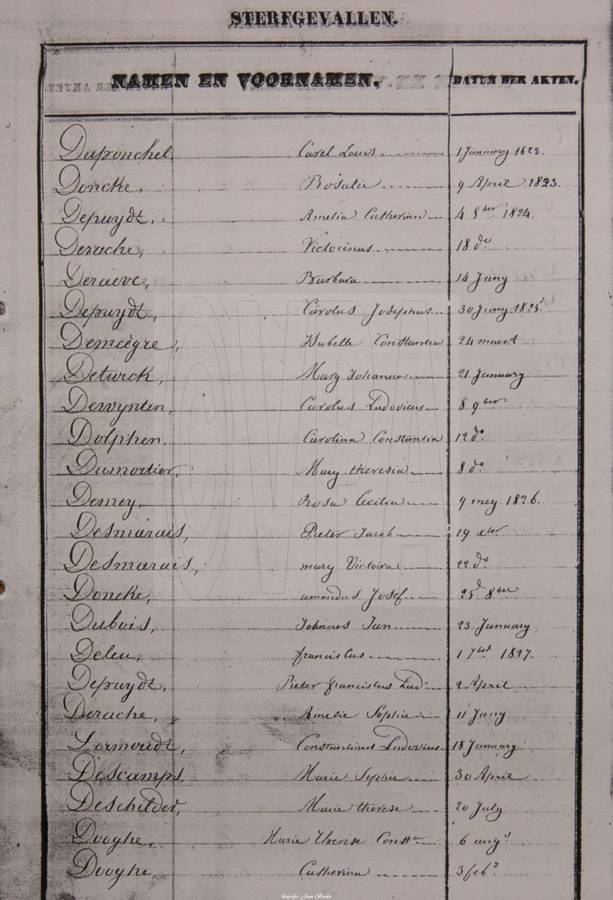 STERFGEVALLEN.
NAMEN EN VOORNAMEN. DATUM DER AKTEN.
Duponchel, Carel Louis 1 January 1823.
Doncke, Rosalie 9 April 1823.
Depuydt, Amelia Catherina 4 8ber 1824.
Derache, Victorinus 18 do
Deraeve, Barbara 14 Juny
Depuydt, Carolus Josephus 30 Juny 1825
Demeègre, Isabelle Constantia 24 maert
Deturck, Mary Johanna 21 January
Dewynten, Carolus Ludovicus 8 9ber
Dolphen, Carolina Constantia 12 do
Dumortier, Mary theresia 8 do
Demey, Rosa Cecilia 9 mey 1826.
Desmarais, Pieter Jacob 19 xber
Desmarais, mary Victoira 22 do
Doncke, amandus Josef 25 8ber
Dubois, Johannes Jan 23 January
Deleu, franciscus 1 7ber 1827.
Depuydt, Pieter franciscus Lud 2 April
Derache, Amelie Sophie 11 Juny
Constantinus Ludovicus 18 January
Descamps, Marie Sophie 30 April
Deschilder, Marie therese 20 July
Dooghe, Marie Therese Const 6 augt
Dooghe, Catherina 3 feb